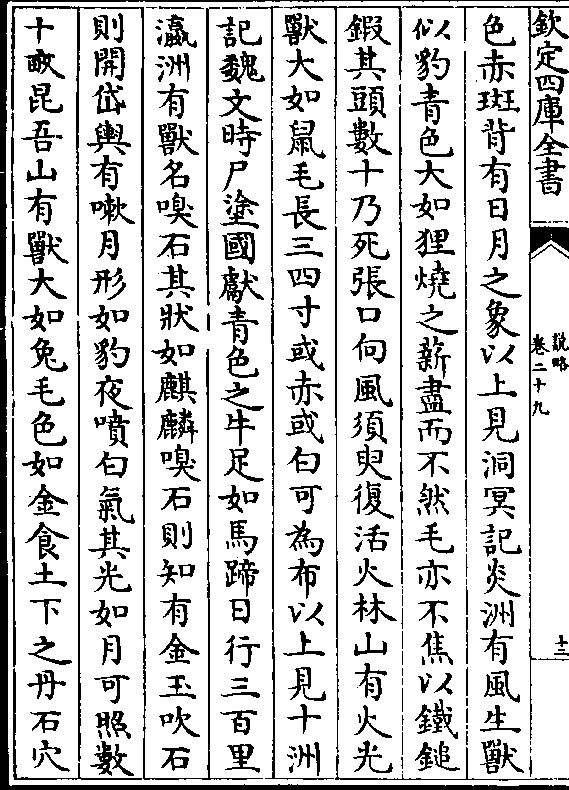 欽定四庫全書
說略
卷二十九
十三
色赤斑背有日月之象以上見洞冥記炎洲有風生獸
似豹青色大如狸燒之薪盡而不然毛亦不焦以鐵鎚
鍜其頭數十乃死張口向風須臾復活火林山有火光
獸大如鼠毛長三四寸或赤或白可為布以上見十洲
記魏文時尸塗國獻青色之牛足如馬蹄日行三百里
瀛洲有獸名嗅石其狀如麒麟嗅石則知有金玉吹石
則開岱輿有嗽月形如豹夜噴白氣其光如月可照數
十畝昆吾山有獸大如兔毛色如金食土下之丹石穴